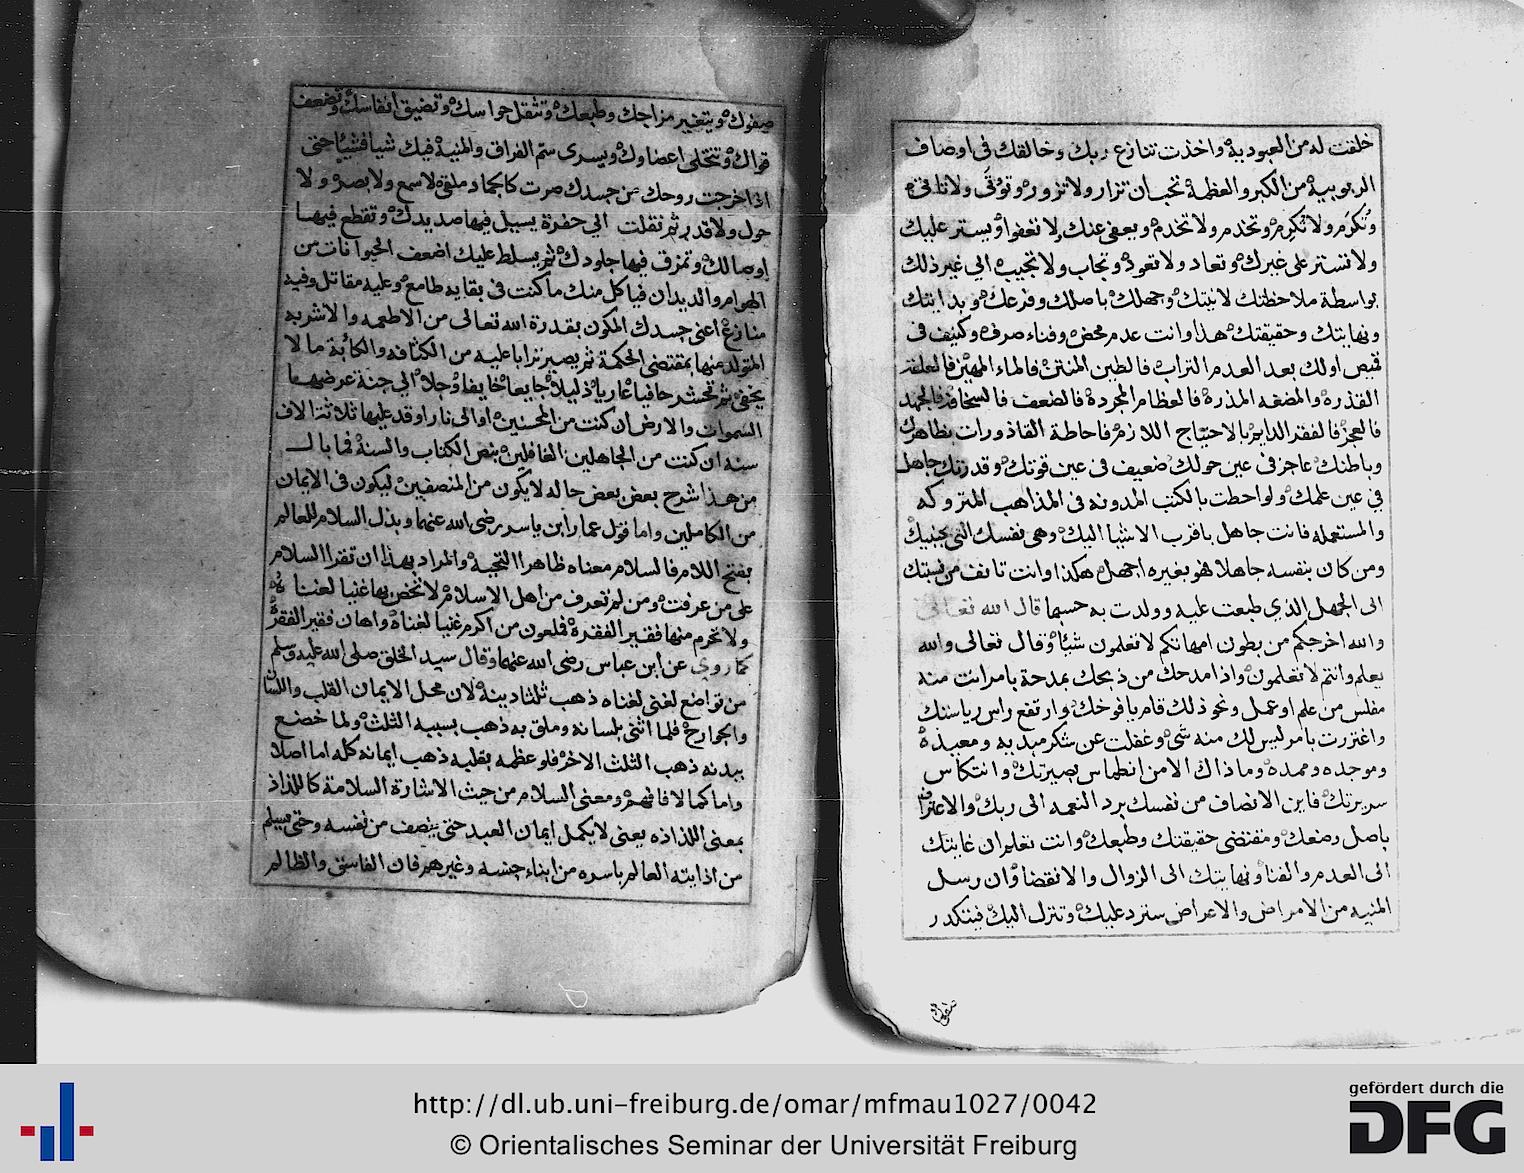 خلقت له من العبودية واخذت تنازع ربك وخالقك في اوصاف
الربوبية من الكبر والعظمة تحب ان تزار ولا تزور وتؤتى ولا تاتي
وتكرم ولا تكرم وتخدم ولا تخدم ويعفى عنك ولا تعفوا ويستر عليك
ولا تستر على غيرك وتعاد ولا تعود وتجاب ولا تجيب الي غير ذلك
بواسطة ملاحظتك لانيتك وجهلك باصلك وفرعك وبدايتك
ونهايتك وحقيقتك هذا وانت عدم محض وفناء صرف وكنيف في
قميص اولك بعد العدم التراب فالطين المنتن فالماء المهين فالعلقة
القذرة والمضغه المذرة فالعظام المجردة فالضعف فالسخافة فالجهد
فالعجز فالفقر الدايم بالاحتياج اللازم فاحاطة القاذورات بظاهرك
وباطنك عاجز في عين حولك ضعيف في عين قوتك وقدرتك جاهل
في عين علمك ولو احطت بالكتب المدونه في المذاهب المتروكه
والمستعمله فانت جاهل باقرب الاشيا اليك وهي نفسك التي بجنبيك
ومن كان بنفسه جاهلا فهو بغيره اجهل هكذا وانت تانف من نسبتك
الى الجهل الذي طبعت عليه وولدت به حسبما قال الله تعالى
والله اخرجكم من بطون امهاتكم لا تعلمون شيئا وقال تعالى والله
يعلم وانتم لا تعلمون واذا مدحك من ذبحك بمدحة بامر انت منه
مفلس من علم او عمل ونحو ذلك قام يافوخك وارتفع راس رياستك
واغتررت بامر ليس لك منه شي وغفلت عن شكر مبديه ومعيده
وموجده وممده وما ذاك الا من انطماس بصيرتك وانتكاس
سريرتك فاين الانصاف من نفسك برد النعمه الى ربك والاعتراف
باصل وضعك ومقتضى حقيقتك وطبعك وانت تعلم ان غايتك
الى العدم والفنا ونهايتك الى الزوال والانقضا وان رسل
المنيه من الامراض والاعراض سترد عليك وتنزل اليك فيتكدر
صفوك
صفوك ويتغير مزاجك وطبعك وتثقل حواسك وتضيق انفاسك وتضعف
قواك وتتخلى اعضاوك ويسرى سم الفراق والمنية فيك شيا فشيئا حتى
اذا خرجت روحك من جسدك صرت كالجماد ملقى لا سمع ولا بصر ولا
حول ولا قدر ثم نقلت الي حفرة يسيل فيها صديدك وتقطع فيها
اوصالك وتمزق فيها جلودك ثم يسلط عليك اضعف الحيوانات من
الهوام والديدان فياكل منك ما كنت في بقايه طامع وعليه مقاتل وفيه
منازع اعني جسدك المكون بقدرة الله تعالى من الاطعمه والاشربه
المتولد منها بمقتضى الحكمة ثم يصير ترابا عليه من الكثافه والكأبة ما لا
يخفى ثم تحشر حافيا عاريا ذليلا جايعا خايفا وجلا الي جنة عرضها
السموات والارض ان كنت من المحسنين او الى نار اوقد عليها ثلاثة الاف
سنه ان كنت من الجاهلين الغافلين بنص الكتاب والسنة فما بال
من هذا شرح بعض بعض حاله لا يكون من المنصفين ليكون في الايمان
من الكاملين واما قول عمار ابن ياسر رضى الله عنهما وبذل السلام للعالم
بفتح اللام فالسلام معناه ظاهرا التحية والمراد بهذا ان تقرا السلام
على من عرفت ومن لم تعرف من اهل الاسلام لا تخص بها غنيا لغناه
ولا تحرم منها فقير الفقره فلعون من اكرم غنيا لغناه واهان فقير الفقره
كما روي عن ابن عباس رضى الله عنهما وقال سيد الخلق صلى الله عليه وسلم
من تواضع لغنى لغناه ذهب ثلثا دينه لان محل الايمان القلب واللسان
والجوارح فلما اثنى بلسانه وملق به ذهب بسببه الثلث ولما خضع
ببدنه ذهب الثلث الاخر فلو عظمه بقلبه ذهب ايمانه كله اما اصلا
واما كمالا فافهم ومعنى السلام من حيث الاشارة السلامة كاللذاذ
بمعنى اللذاذه يعنى لا يكمل ايمان العبد حتى ينصف من نفسه وحتى يسلم
من اذايته العالم باسره من ابناء جنسه وغيرهم فان الفاسق والظالم
http://dl.ub.uni-freiburg.de/omar/mfmau1027/0042
© Orientalisches Seminar der Universität Freiburg
gefördert durch die
DFG